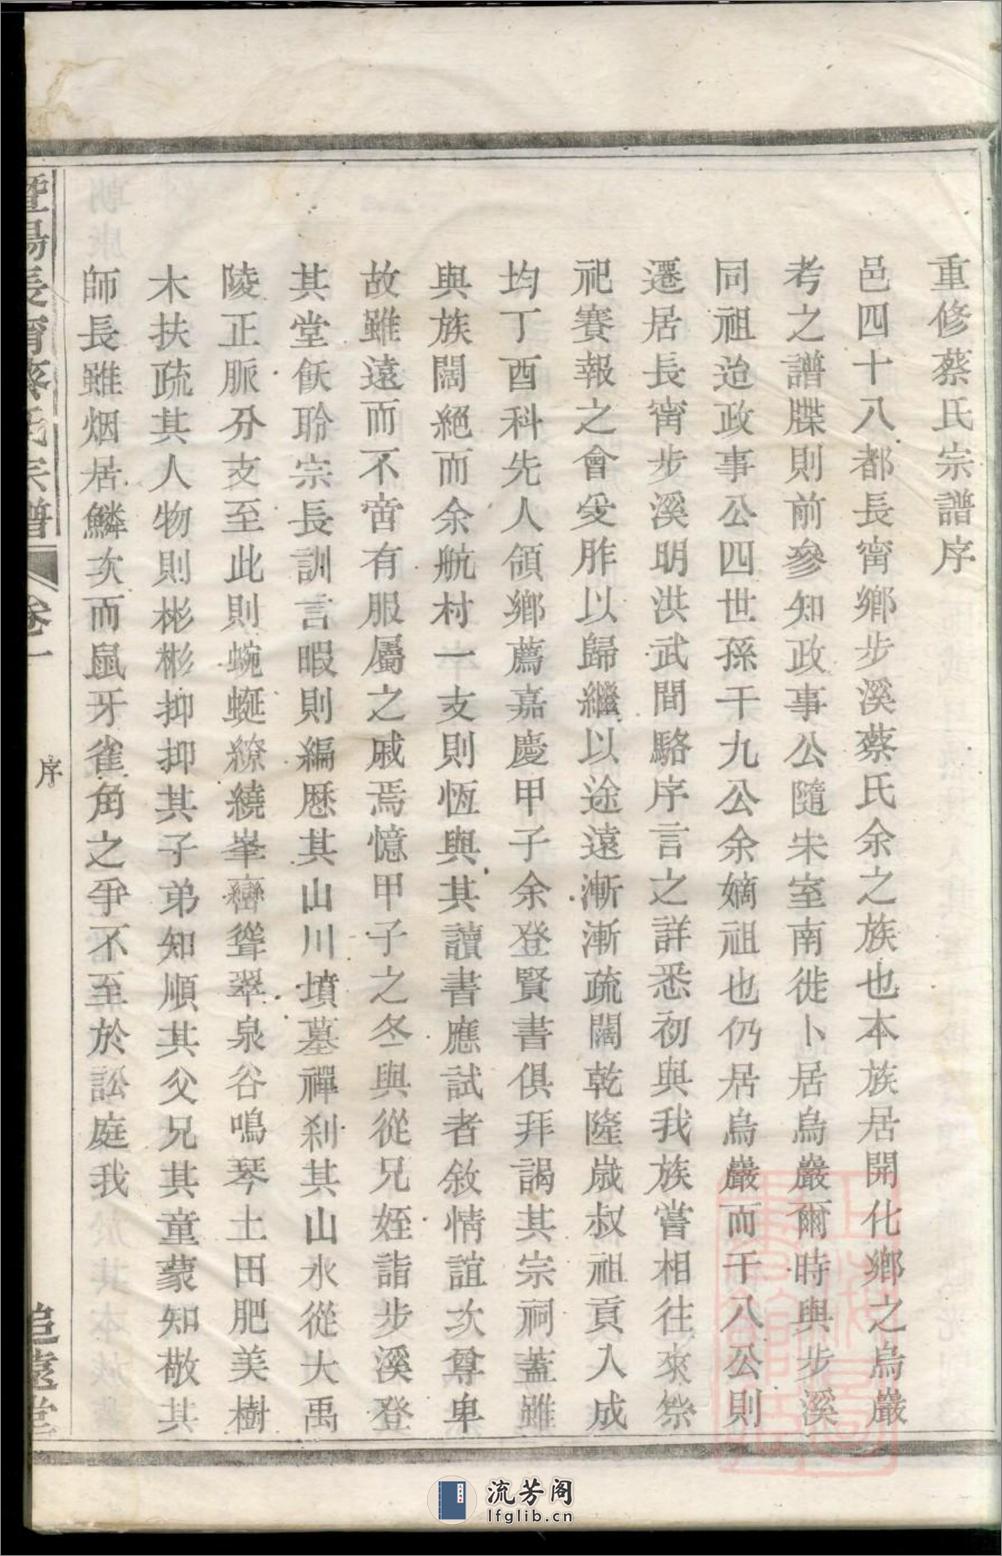 重修蔡氏宗譜序
邑四十八都長甯鄉步溪蔡氏余之族也本族居開化鄉之烏巖
考之譜牒則前參知政事公隨宋室南徙卜居烏巖爾時與步溪
同祖迨政事公四世孫千九公余嫡祖也仍居烏巖而千八公則
遷居長甯步溪明洪武間駱序言之詳悉初與我族嘗相往來祭
祀賽報之會受胙以歸繼以途遠漸漸疏闊乾隆歲叔祖貢入成
均丁酉科先人領鄉薦嘉慶甲子余登賢書俱拜謁其宗祠蓋雖
與族闊絕而余航村一支則恆與其讀書應試者敘情誼次尊卑
故雖遠而不啻有服屬之戚焉憶甲子之冬與從兄姪詣步溪登
其堂飫聆宗長訓言暇則編歷其山川墳墓禪刹其山水從大禹
陵正脈分支至此則蜿蜒繚繞峯巒聳翠泉谷鳴琴土田肥美樹
木扶疏其人物則彬彬抑抑其子弟知順其父兄其童蒙知敬其
師長雖烟居鱗次而鼠牙雀角之爭不至於訟庭我
暨陽長甯蔡氏宗譜 卷一 序 追遠堂
流芳阁
lfglib.cn